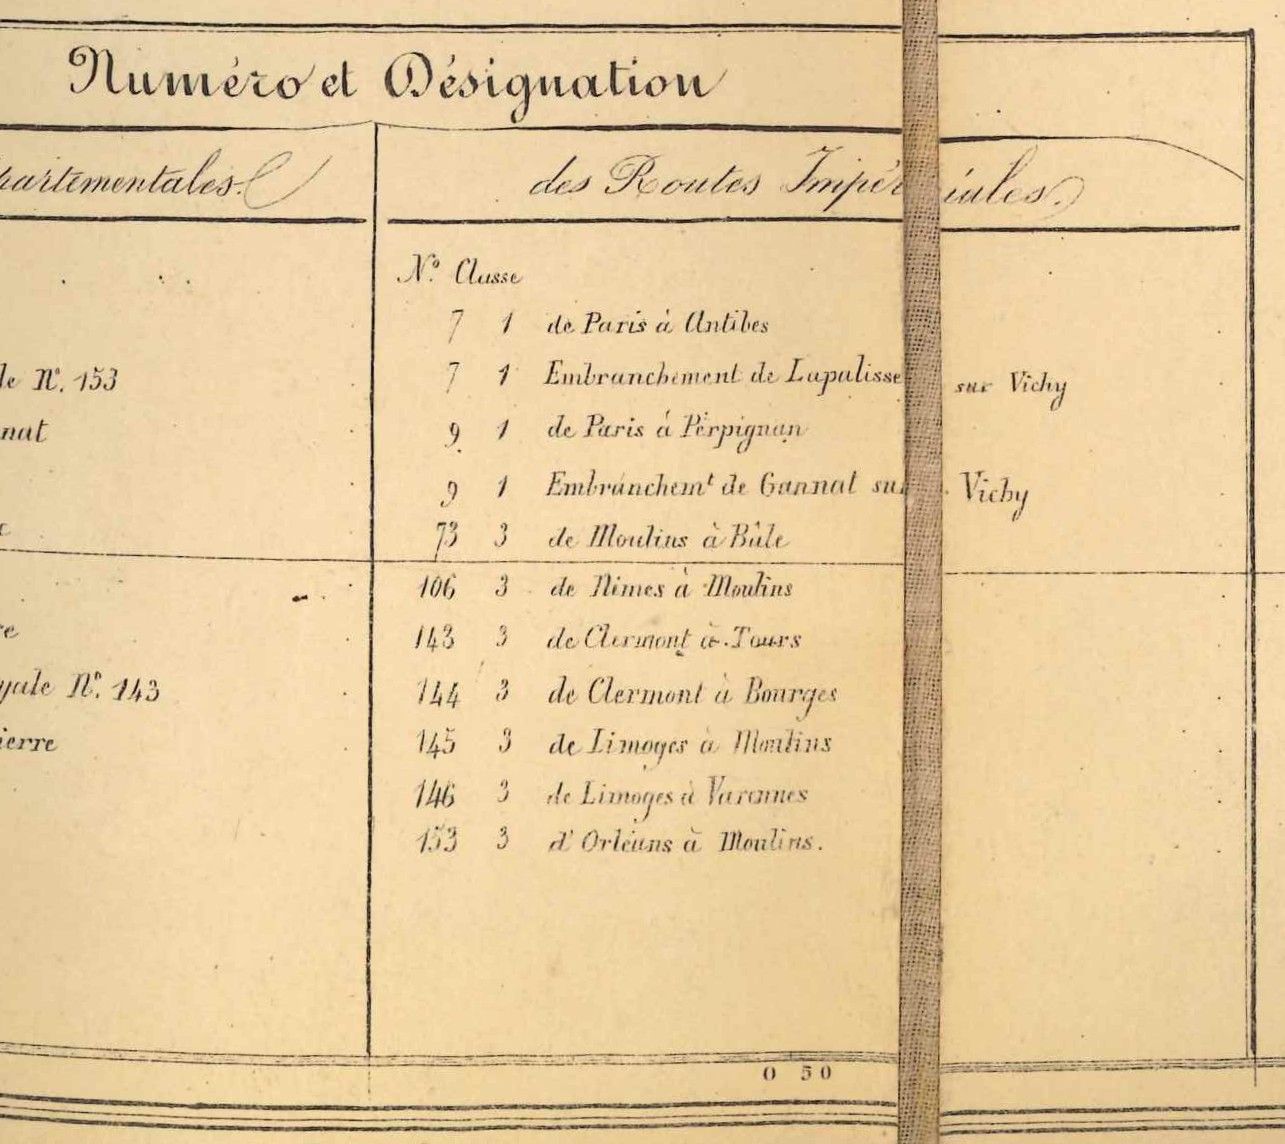 Numéro et Désignation
partementales.
des Routes Impériales.
Nº Classe
7 1 de Paris à Antibes
le Nº. 153
7 1 Embranchement de Lapalisse sur Vichy
nat
9 1 de Paris à Perpignan
9 1 Embranchemt de Gannat sur Vichy
73 3 de Moulins à Bâle
106 3 de Nimes à Moulins
re
143 3 de Clermont à Tours
yale Nº. 143
144 3 de Clermont à Bourges
ierre
145 3 de Limoges à Moulins
146 3 de Limoges à Varennes
153 3 d'Orléans à Moulins.
0 50